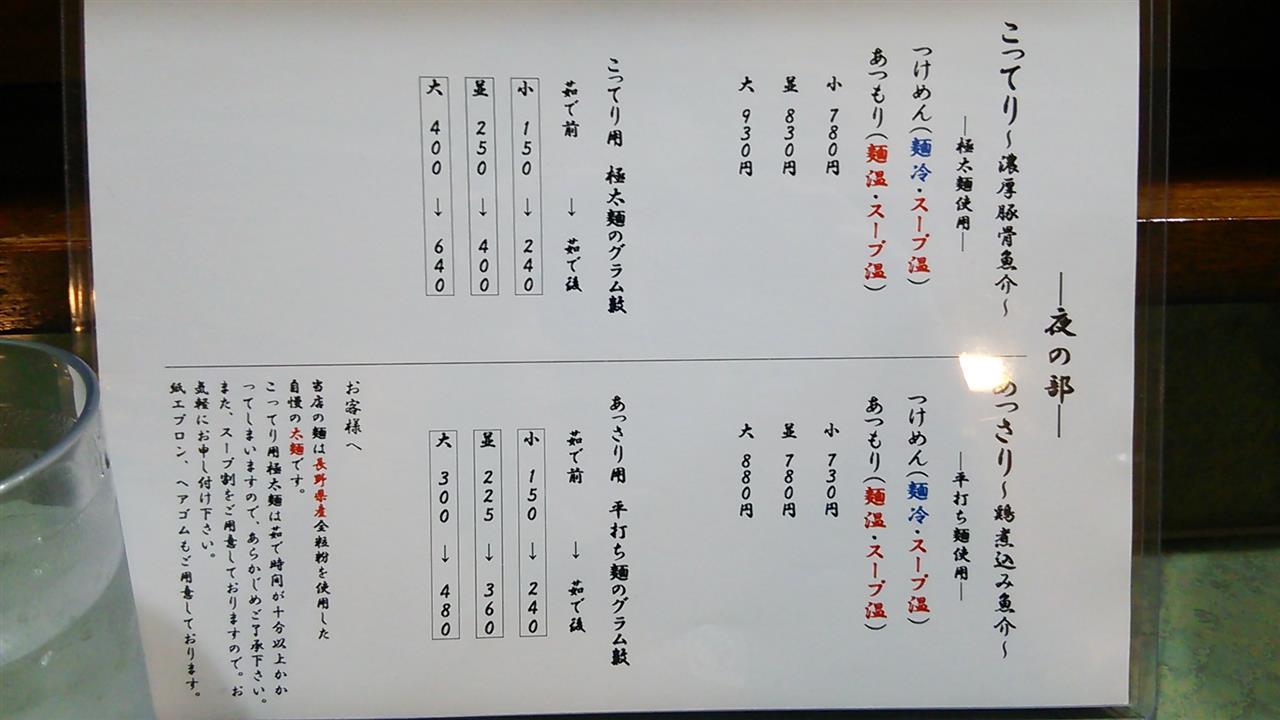 ―夜の部―
こってり～濃厚豚骨魚介～
―極太麺使用―
つけめん(麺冷・スープ温)
あつもり(麺温・スープ温)
小 780円
並 830円
大 930円
こってり用 極太麺のグラム数
茹で前 → 茹で後
小 150 → 240
並 250 → 400
大 400 → 640
あっさり～鶏煮込み魚介～
―平打ち麺使用―
つけめん(麺冷・スープ温)
あつもり(麺温・スープ温)
小 730円
並 780円
大 880円
あっさり用 平打ち麺のグラム数
茹で前 → 茹で後
小 150 → 240
並 225 → 360
大 300 → 480
お客様へ
当店の麺は長野県産全粒粉を使用した
自慢の太麺です。
こってり用極太麺は茹で時間が十分以上かか
ってしまいますので、あらかじめご了承下さい。
また、スープ割をご用意しておりますので。お
気軽にお申し付け下さい。
紙エプロン、ヘアゴムもご用意しております。